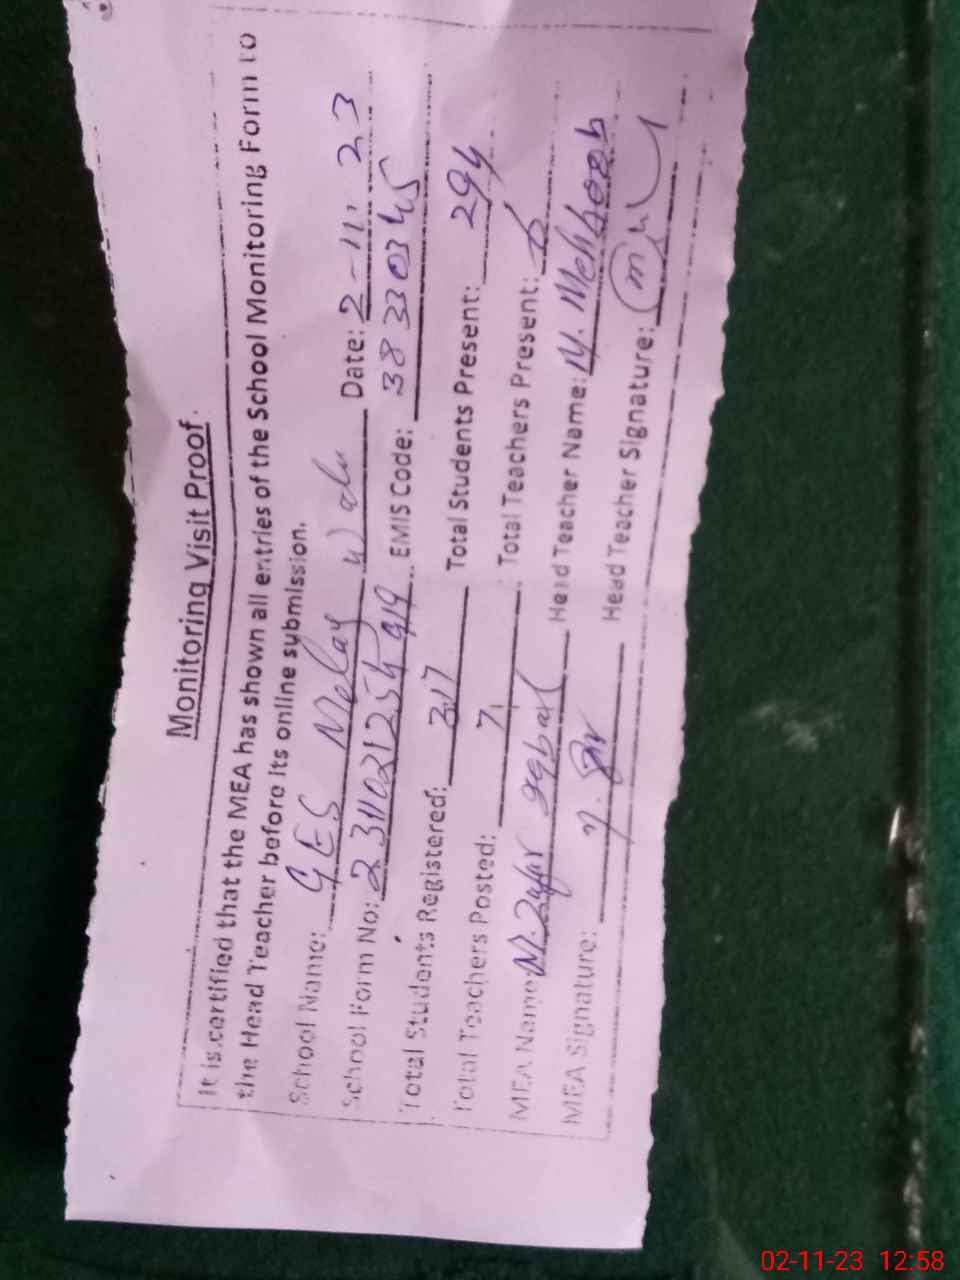 Monitoring Visit Proof.
It is certified that the MEA has shown all entries of the School Monitoring Form to
the Head Teacher before its online submission.
School Name: GES Melay Date: 2-11-23
School Form No: 2311021254919 EMIS Code: 38330345
Total Students Registered: 317 Total Students Present: 294
Total Teachers Posted: 7 Total Teachers Present: 6
MEA Name: M. Zafar Iqbal Head Teacher Name: M. Mehboob
MEA Signature: Head Teacher Signature:
02-11-23 12:58